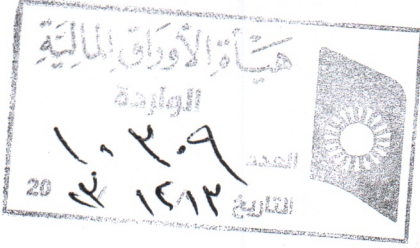 هيأة الأوراق المالية
الواردة
العدد ١٠٣٠٩
التاريخ ١٢/١٣ 20